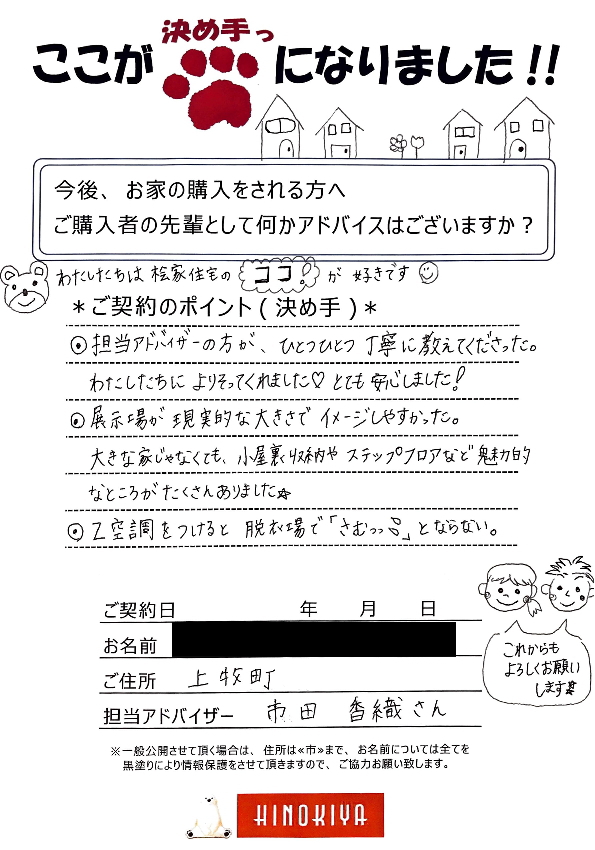 決め手っ
ここが になりました!!
今後、お家の購入をされる方へ
ご購入者の先輩として何かアドバイスはございますか?
わたしたちは 桧家住宅の ココ! が 好きです
*ご契約のポイント(決め手)*
◉担当アドバイザーの方が、ひとつひとつ 丁寧に教えてくださった。
わたしたちに よりそってくれました♡ とても 安心しました!
◉展示場が 現実的な大きさで イメージしやすかった。
大きな家じゃなくても、小屋裏収納や ステップフロアなど 魅力的
なところが たくさんありました☆
◉Z空調をつけると 脱衣場で「さむっっ」とならない。
ご契約日 年 月 日
お名前
ご住所 上牧町
担当アドバイザー 市田 香織さん
これからも
よろしくお願い
します
※一般公開させて頂く場合は、住所は≪市≫まで、お名前については全てを
黒塗りにより情報保護をさせて頂きますので、ご協力お願い致します。
HINOKIYA